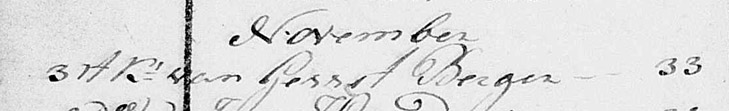 November
3 't Kt van Gerrit Berger — 33